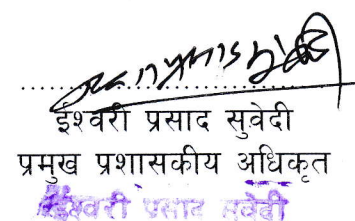 ईश्वरी प्रसाद सुवेदी
प्रमुख प्रशासकीय अधिकृत
ईश्वरी प्रसाद सुवेदी